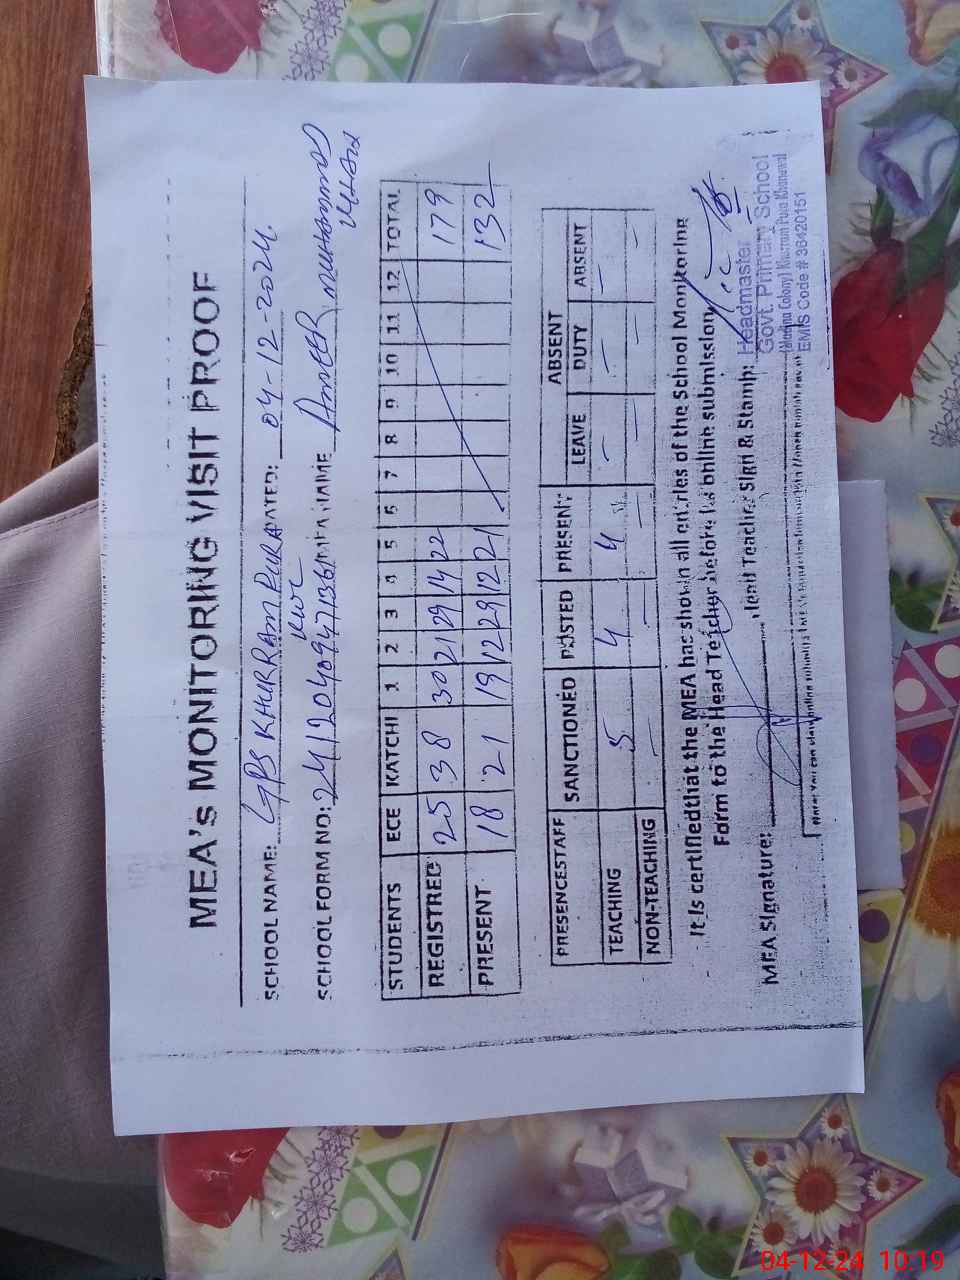 MEA's MONITORING VISIT PROOF
SCHOOL NAME: GPS KHURRAM PURA DATED: 04-12-2024.
KWL
SCHOOL FORM NO: 2412040947136 MEA NAME AMEER MUHAMMAD KHAN
STUDENTS ECE KATCHI 1 2 3 4 5 6 7 8 9 10 11 12 TOTAL
REGISTRED 25 38 30 21 29 14 22 179
PRESENT 18 21 19 12 29 12 21 132
ABSENT
PRESENCESTAFF SANCTIONED POSTED PRESENT LEAVE DUTY ABSENT
TEACHING 5 4 4 — — —
NON-TEACHING — — — — — —
It is certifiedthat the MEA has shown all entries of the School Monitoring
Form to the Head Teacher before its online submission
MEA Signature: Head Teacher Sign & Stamp:
Headmaster
Govt. Primary School
(Madina Colony) Khurram Pura Khanewal
EMIS Code # 36420151
04-12-24 10:19